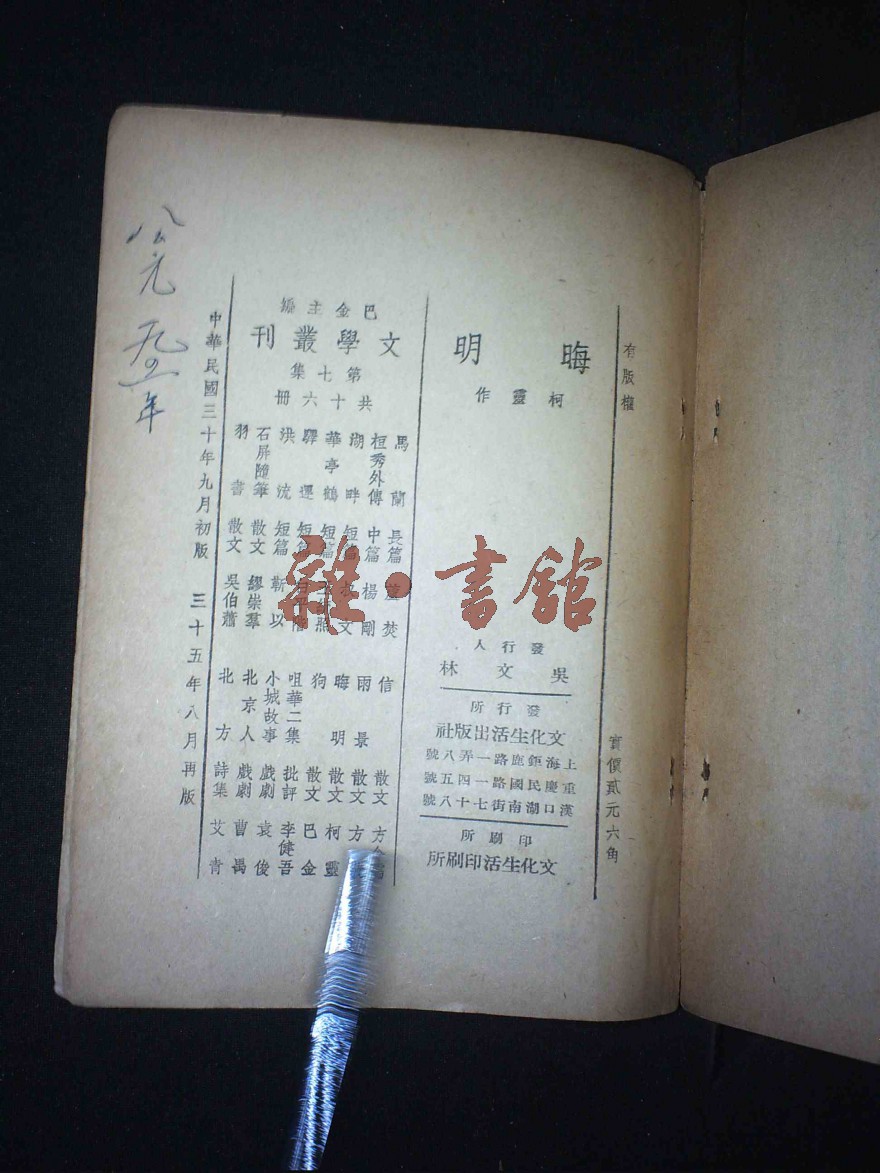 有版權
實價貳元六角
晦明
柯靈作
發行人
吳文林
發行所
文化生活出版社
上海鉅鹿路一弄八號
重慶民國路一四五號
漢口湖南街七十八號
印刷所
文化生活印刷所
巴金主編
文學叢刊
第七集
共十六冊
馬蘭 長篇 蘆焚
桓秀外傳 中篇 楊剛
湖畔 短篇 文
華亭鶴 短篇 照
驛運 短篇
洪流 短篇 靳以
石屏隨筆 散文 繆崇羣
羽書 散文 吳伯蕭
信 散文 方
雨景 散文 方
晦明 散文 柯靈
狗 散文 巴金
咀華二集 批評 李健吾
小城故事 戲劇 袁俊
北京人 戲劇 曹禺
北方 詩集 艾青
中華民國三十年九月初版 三十五年八月再版
公元一九四一年
雜·書館